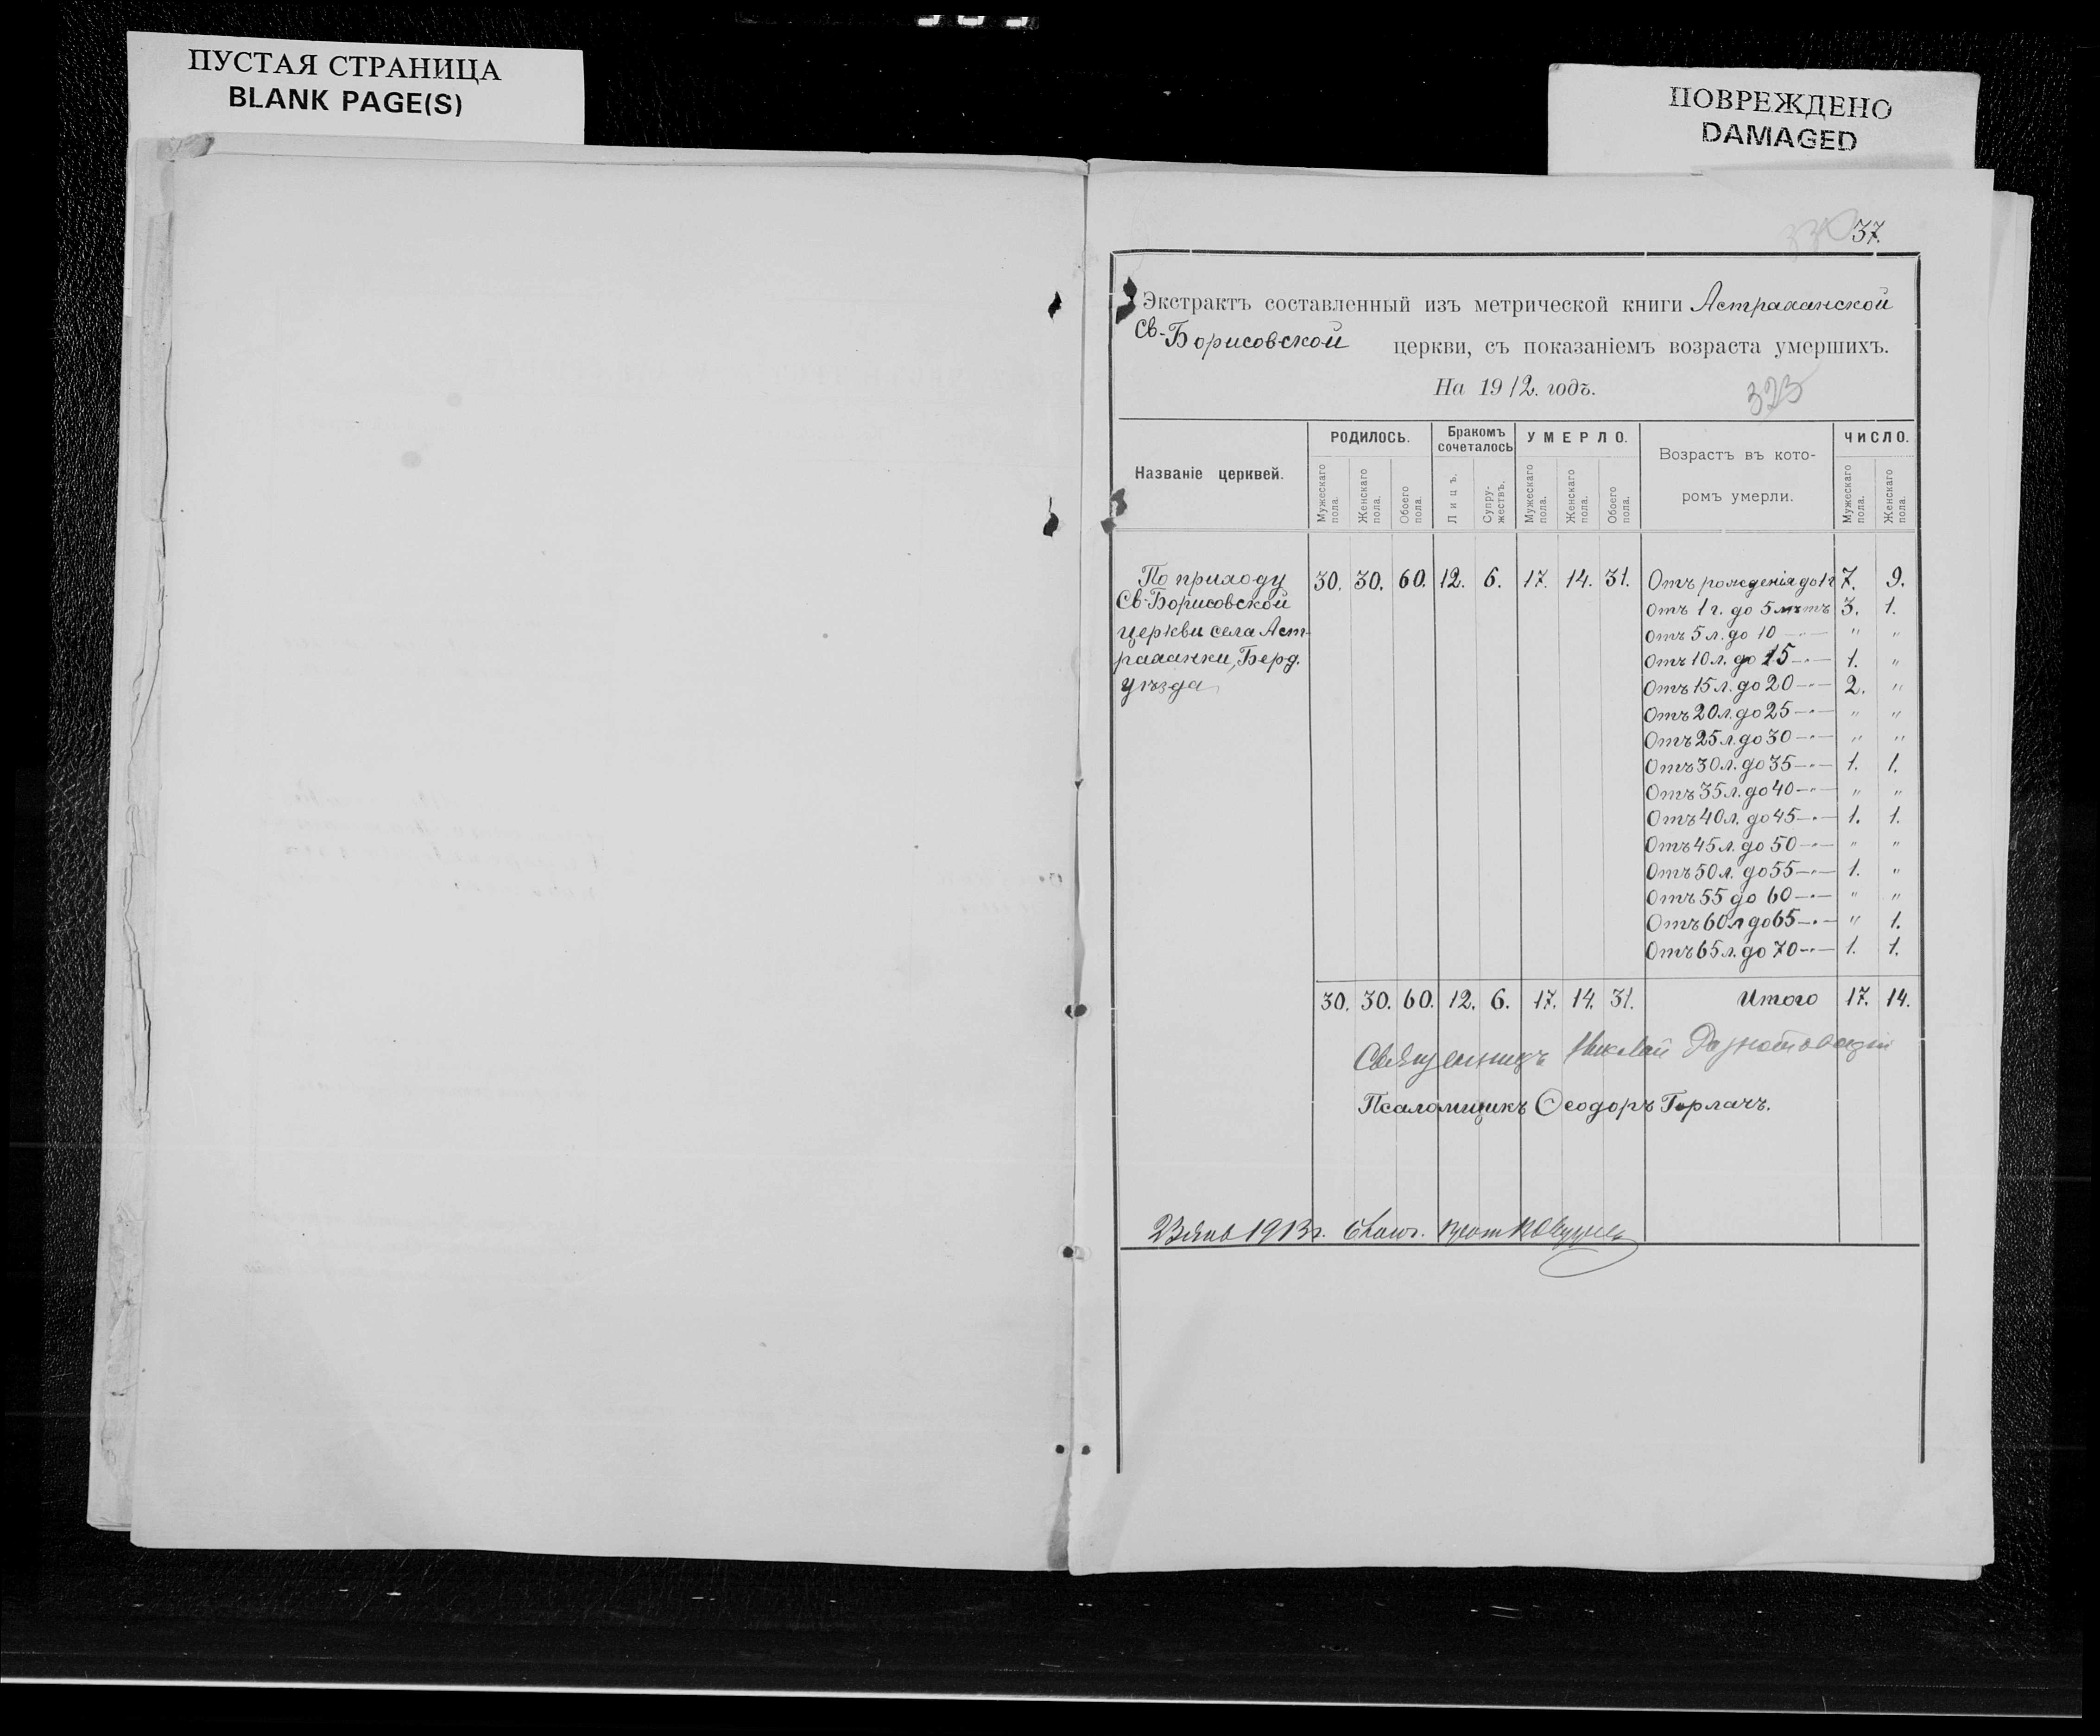 ПУСТАЯ СТРАНИЦА
BLANK PAGE(S)
ПОВРЕЖДЕНО
DAMAGED
37.
Экстрактъ составленный изъ метрической книги Астраханской
Св-Борисовской церкви, съ показаніемъ возраста умершихъ.
На 1912. годъ.
323
Названіе церквей. РОДИЛОСЬ. Бракомъ сочеталось УМЕРЛО. Возрастъ въ кото- ЧИСЛО.
ромъ умерли.
Мужескаго пола. Женскаго пола. Обоего пола. Лицъ. Супру-жествъ. Мужескаго пола. Женскаго пола. Обоего пола. Мужескаго пола. Женскаго пола.
По приходу 30. 30. 60. 12. 6. 17. 14. 31. Отъ рожденія до 1 г 7. 9.
Св-Борисовской Отъ 1 г. до 5 лѣтъ 3. 1.
церкви села Аст- Отъ 5 л. до 10 —"— " "
раханки, Берд. Отъ 10 л. до 15 —"— 1. "
уѣзда Отъ 15 л. до 20 —"— 2. "
Отъ 20 л. до 25 —"— " "
Отъ 25 л. до 30 —"— " "
Отъ 30 л. до 35 —"— 1. 1.
Отъ 35 л. до 40 —"— " "
Отъ 40 л. до 45 —"— 1. 1.
Отъ 45 л. до 50 —"— " "
Отъ 50 л. до 55 —"— 1. "
Отъ 55 до 60 —"— " "
Отъ 60 л до 65 —"— " 1.
Отъ 65 л. до 70 —"— 1. 1.
30. 30. 60. 12. 6. 17. 14. 31. Итого 17. 14.
Священникъ Николай
Псаломщикъ Ѳеодоръ Горлачъ.
23 янв 1913 г.